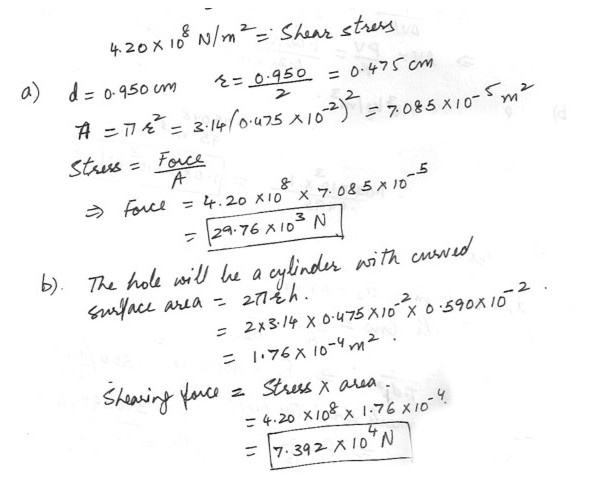 4.20 x 10^8 N/m^2 = Shear stress
a) d = 0.950 cm r = 0.950/2 = 0.475 cm
A = πr^2 = 3.14(0.475 x 10^-2)^2 = 7.085 x 10^-5 m^2
Stress = Force/A
⇒ Force = 4.20 x 10^8 x 7.085 x 10^-5
= 29.76 x 10^3 N
b). The hole will be a cylinder with curved
surface area = 2πrh.
= 2x3.14 x 0.475 x 10^-2 x 0.590x10^-2.
= 1.76 x 10^-4 m^2.
Shearing force = Stress x area.
= 4.20 x10^8 x 1.76 x10^-4
= 7.392 x 10^4 N